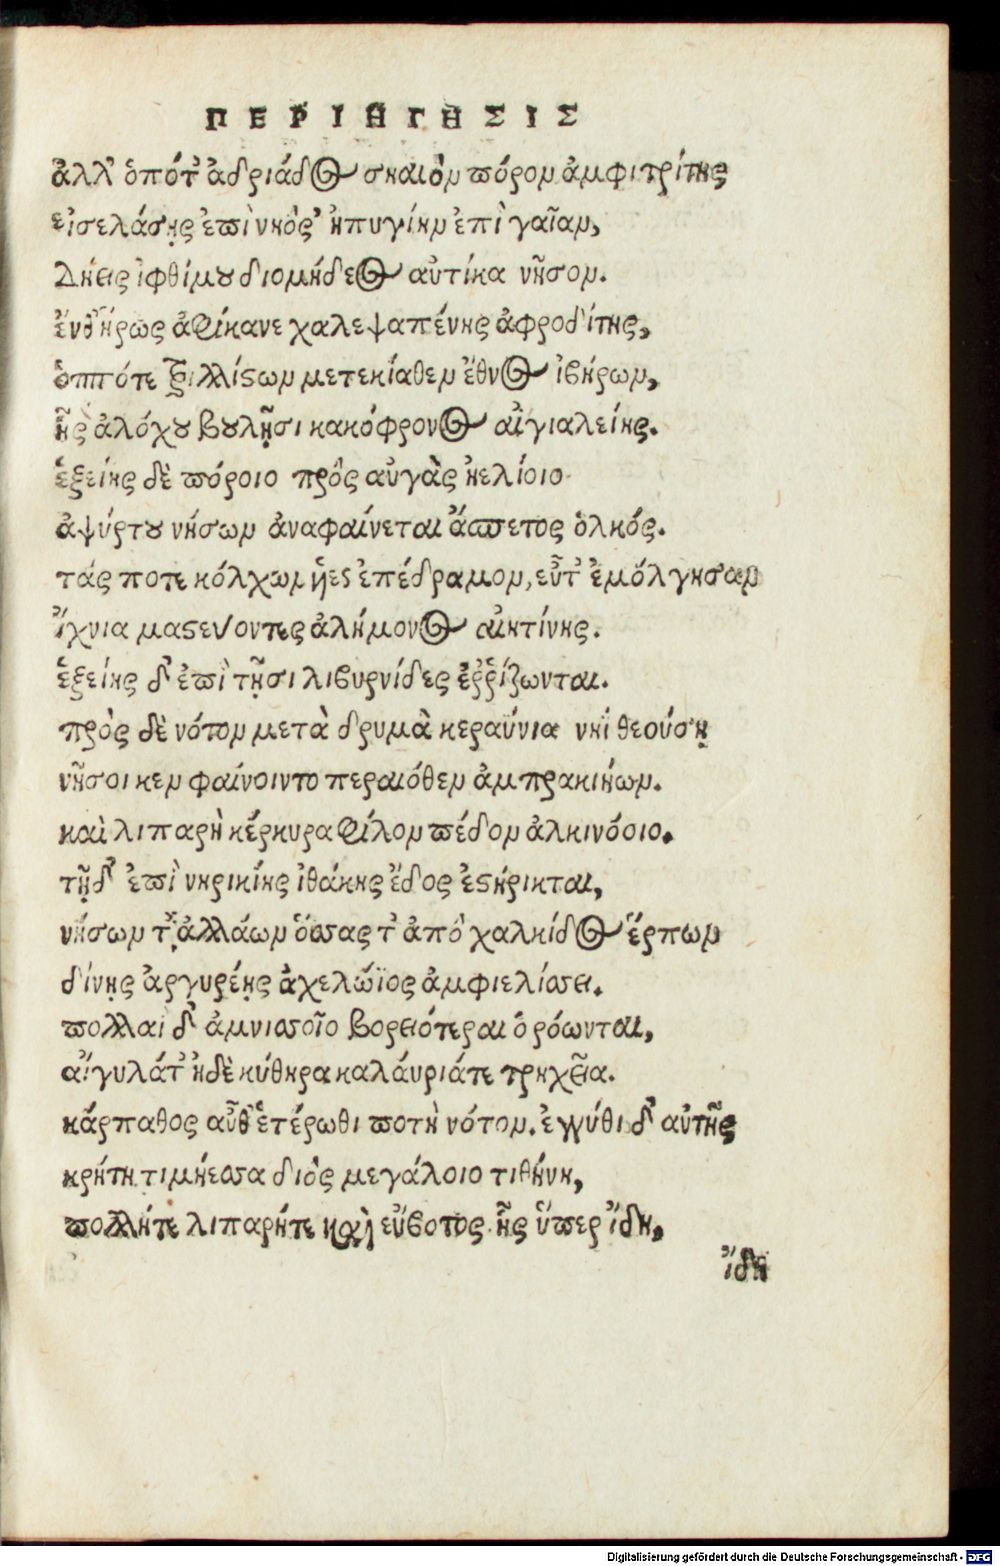 ΠΕΡΙΗΓΗΣΙΣ
ἀλλ' ὁπότ' ἀδριάδος σκαιὸν πόρον ἀμφιτρίτης
εἰσελάσῃς ἐπὶ νηὸς ἠπυγίην ἐπὶ γαῖαν,
Δήεις ἰφθίμου διομήδεος αὐτίκα νῆσον.
ἔνθ' ἥρως ἀφίκανε χαλεψαπένης ἀφροδίτης,
ὁππότε τριλλίστων μετεκίαθεν ἔθνος ἰβήρων,
ἧς ἀλόχου βουλῇσι κακόφρονος αἰγιαλείης.
ἑξείης δὲ πόροιο πρὸς αὐγὰς ἠελίοιο
ἀψύρτου νήσων ἀναφαίνεται ἄσπετος ὁλκός.
τάς ποτε κόλχων ἧες ἐπέδραμον, εὖτ' ἐμόλγησαν
ἴχνια μαστεύοντες ἀλήμονος αἰητίνης.
ἑξείης δ' ἐπὶ τῇσι λιβυρνίδες ἐῤῥίζωνται.
πρὸς δὲ νότον μετὰ δρυμὰ κεραΰνια νηῒ θεούσῃ
νῆσοι κεν φαίνοιντο περαιόθεν ἀμπρακιήων.
καὶ λιπαρὴ κέρκυρα φίλον πέδον ἀλκινόοιο.
τῇ δ' ἐπὶ νηρικίης ἰθάκης ἕδος ἐστήρικται,
νήσων τ' ἀλλάων ὅσσας τ' ἀπὸ χαλκίδος ἕρπων
δίνῃς ἀργυρέῃς ἀχελώϊος ἀμφιελίσσει.
πολλαὶ δ' ἀμνισσοῖο βορειότεραι ὁρόωνται,
αἴγυλάτ' ἠδὲ κύθηρα καλάυριάτε τρηχεῖα.
κάρπαθος αὖθ' ἑτέρωθι ποτὴ νότον. ἐγγύθι δ' αὐτῆς
κρήτη τιμήεσσα διὸς μεγάλοιο τιθήνη,
πολλήτε λιπαρήτε καὶ εὔβοτος. ἧς ὕπερ ἴδη,
ἴδη
Digitalisierung gefördert durch die Deutsche Forschungsgemeinschaft - DFG